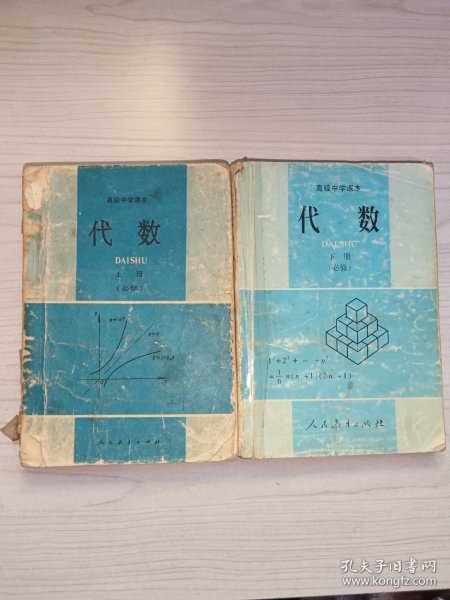 高级中学课本
代数
DAISHU
上册
(必修)
人民教育出版社
高级中学课本
代数
DAISHU
下册
(必修)
1²+2²+…+n²
=1/6 n(n+1)(2n+1)
人民教育出版社
孔夫子旧书网
www.kongfz.com